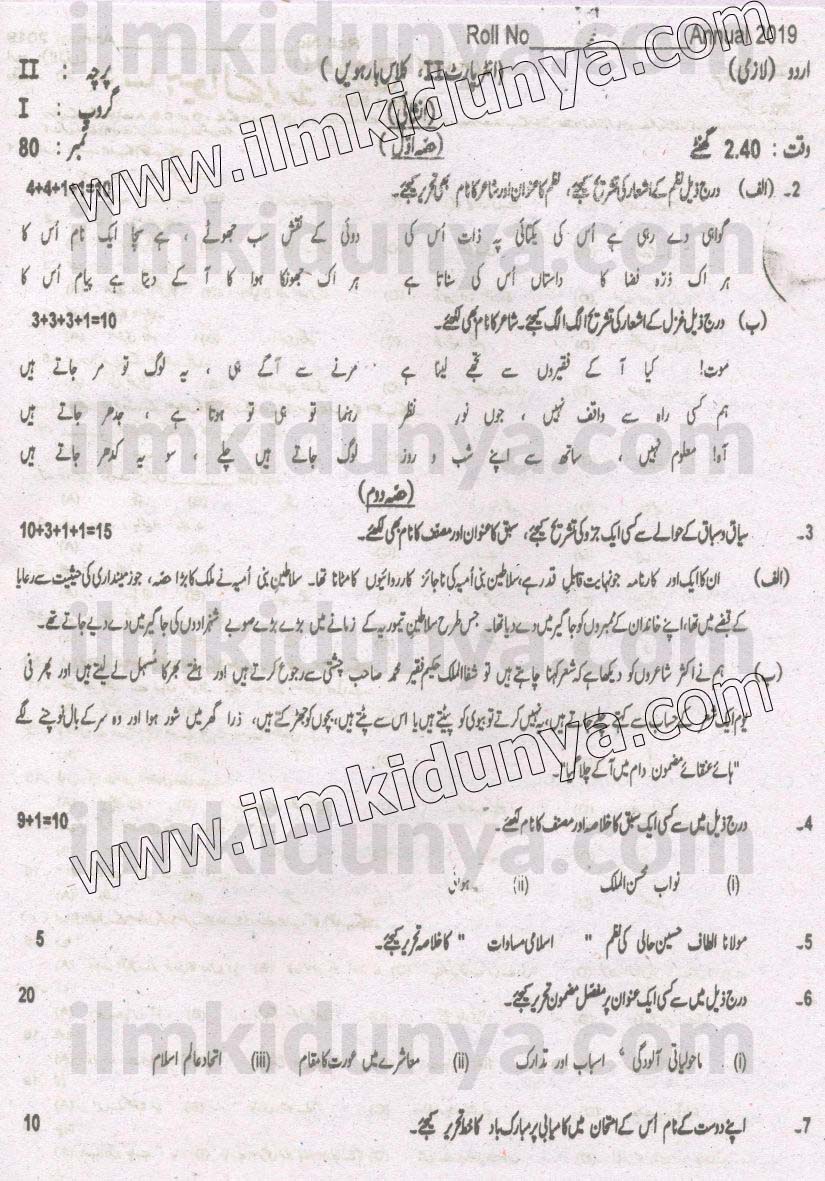 Roll No____________ Annual 2019
اردو (لازمی) (انٹر پارٹ II، کلاس بارھویں) پرچہ : II
(انشائی) گروپ : I
وقت : 2.40 گھنٹے (حصّہ اوّل) نمبر : 80
2۔ (الف) درج ذیل نظم کے اشعار کی تشریح کیجئے، نظم کا عنوان اور شاعر کا نام بھی تحریر کیجئے۔ 4+4+1+1=10
گواہی دے رہی ہے اُس کی یکتائی پہ ذات اُس کی دوئی کے نقش سب جھوٹے ، ہے سچا ایک نام اُس کا
ہر اک ذرّہ فضا کا داستاں اُس کی سناتا ہے ہر اک جھونکا ہوا کا آ کے دیتا ہے پیام اُس کا
(ب) درج ذیل غزل کے اشعار کی تشریح الگ الگ کیجئے۔ شاعر کا نام بھی لکھئے۔ 3+3+3+1=10
موت! کیا آ کے فقیروں سے تجھے لینا ہے مرنے سے آگے ہی ، یہ لوگ تو مر جاتے ہیں
ہم کسی راہ سے واقف نہیں ، جوں نورِ نظر رہنما تو ہی تو ہوتا ہے ، جدھر جاتے ہیں
آہ! معلوم نہیں ، ساتھ سے اپنے شب و روز لوگ جاتے ہیں چلے ، سو یہ کدھر جاتے ہیں
(حصّہ دوم)
3۔ سیاق و سباق کے حوالے سے کسی ایک جزو کی تشریح کیجئے، سبق کا عنوان اور مصنف کا نام بھی لکھئے۔ 10+3+1+1=15
(الف) ان کا ایک اور کارنامہ جو نہایت قابلِ قدر ہے، سلاطینِ بنی اُمیہ کی ناجائز کارروائیوں کا مٹانا تھا۔ سلاطینِ بنی اُمیہ نے ملک کا بڑا حصّہ، جو زمینداری کی حیثیت سے رعایا
کے قبضے میں تھا، اپنے خاندان کے ممبروں کو جاگیر میں دے دیا تھا۔ جس طرح سلاطینِ تیموریہ کے زمانے میں بڑے بڑے صوبے شہزادوں کی جاگیر میں دے دیے جاتے تھے۔
(ب) ہم نے اکثر شاعروں کو دیکھا ہے کہ شعر کہنا چاہتے ہیں تو شفا الملک حکیم فقیر محمد صاحب چشتی سے رجوع کرتے ہیں اور ہفتے بھر کا مُسہل لے لیتے ہیں اور پھر فی
یوم ایک شعر کے حساب سے کہتے چلے جاتے ہیں، یہ نہیں کرتے تو بیوی کو پیٹتے ہیں یا اس سے پٹتے ہیں، بچوں کو جھڑکتے ہیں، ذرا گھر میں شور ہوا اور وہ سر کے بال نوچنے لگے
"ہائے عنقائے مضمون دام میں آ کے چلا گیا"۔
4۔ درج ذیل میں سے کسی ایک سبق کا خلاصہ اور مصنف کا نام لکھئے۔ 9+1=10
(i) نواب محسن الملک (ii) ہوائی
5۔ مولانا الطاف حسین حالی کی نظم " اسلامی مساوات " کا خلاصہ تحریر کیجئے۔ 5
6۔ درج ذیل میں سے کسی ایک عنوان پر مفصل مضمون تحریر کیجئے۔ 20
(i) ماحولیاتی آلودگی ، اسباب اور تدارک (ii) معاشرے میں عورت کا مقام (iii) اتحاد عالم اسلام
7۔ اپنے دوست کے نام اُس کے امتحان میں کامیابی پر مبارک باد کا خط تحریر کیجئے۔ 10
www.ilmkidunya.com
www.ilmkidunya.com
ilmkidunya.com
ilmkidunya.com
ilmkidunya.com
ilmkidunya.com
ilmkidunya.com